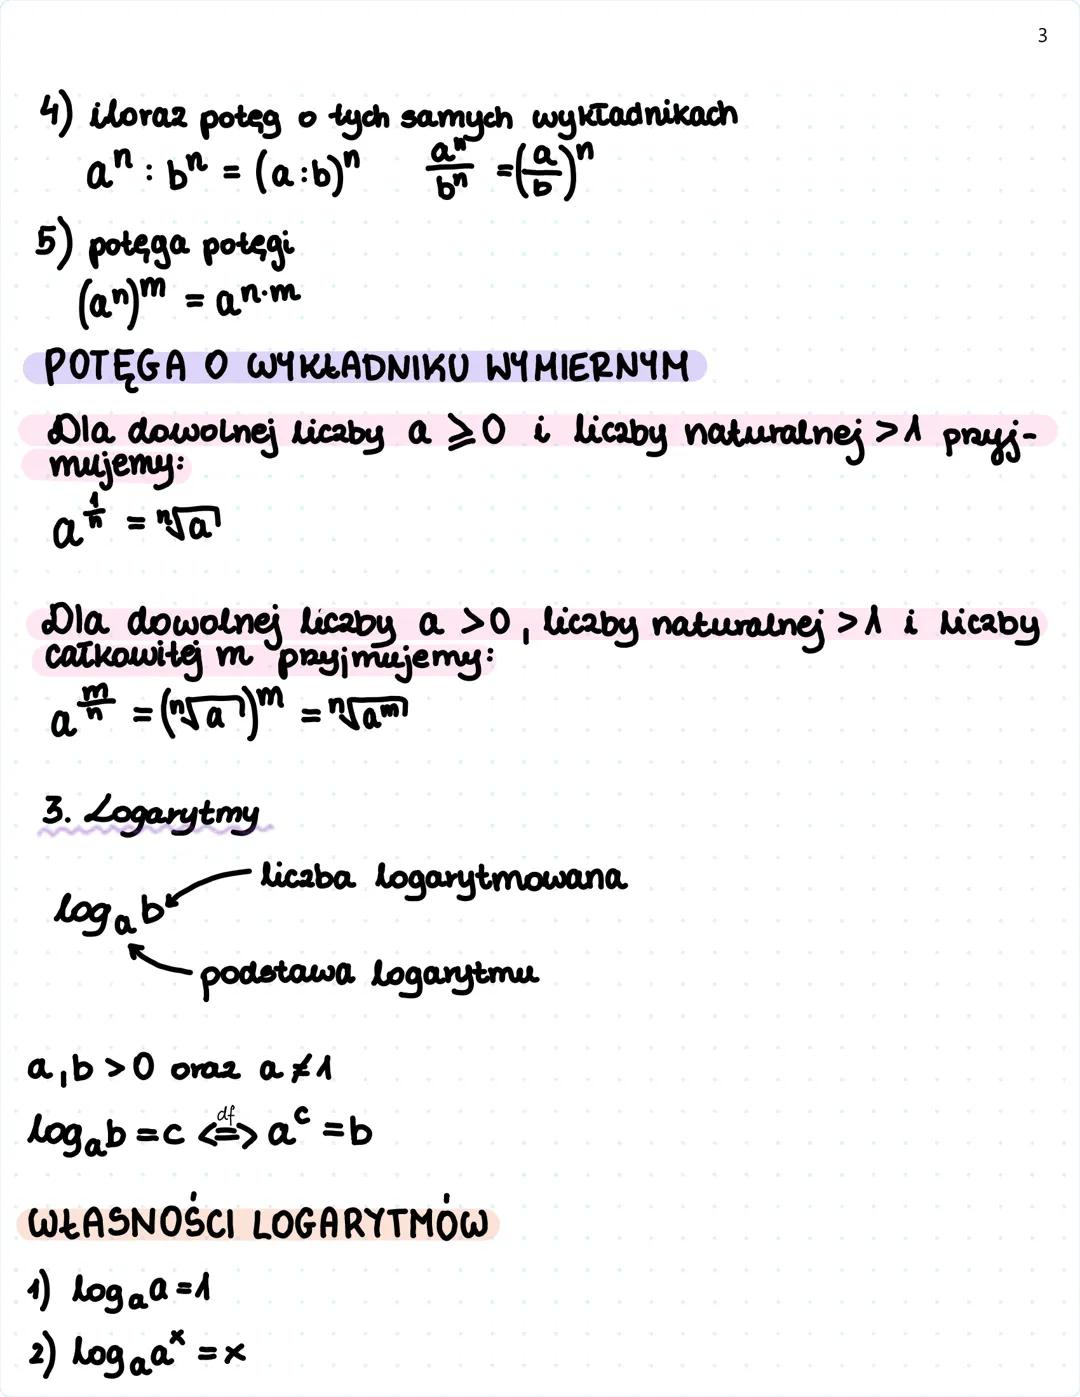 3
4) iloraz potęg o tych samych wykładnikach
aⁿ : bⁿ = (a:b)ⁿ   aⁿ/bⁿ = (a/b)ⁿ
5) potęga potęgi
(aⁿ)ᵐ = aⁿ·ᵐ
POTĘGA O WYKŁADNIKU WYMIERNYM
Dla dowolnej liczby a ⩾ 0 i liczby naturalnej > 1 przyj-
mujemy:
a^(1/n) = ⁿ√a
Dla dowolnej liczby a > 0, liczby naturalnej > 1 i liczby
całkowitej m przyjmujemy:
a^(m/n) = (ⁿ√a)ᵐ = ⁿ√aᵐ
3. Logarytmy
liczba logarytmowana
logₐb
podstawa logarytmu
a,b > 0 oraz a ≠ 1
logₐb = c <=>(df) aᶜ = b
WŁASNOŚCI LOGARYTMÓW
1) logₐa = 1
2) logₐaˣ = x